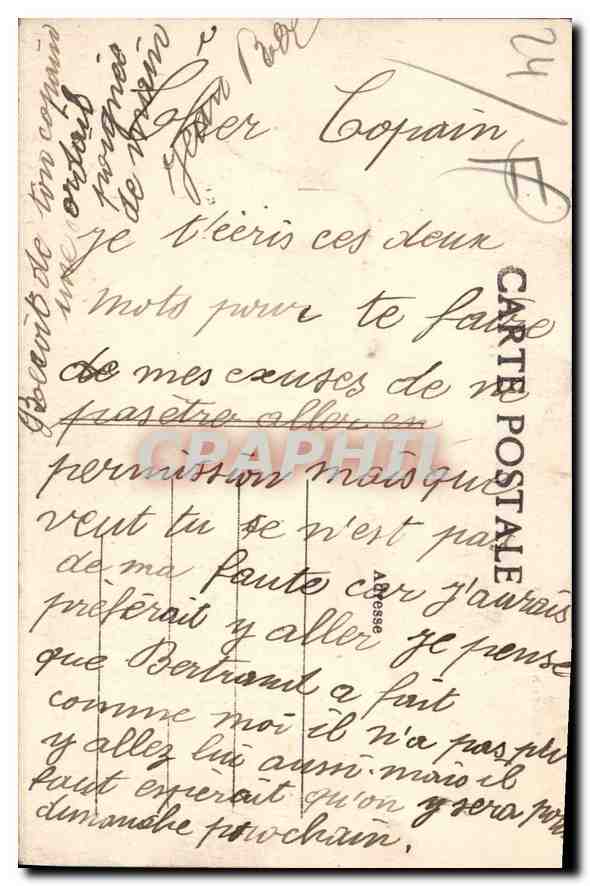 24
Cher Copain
je t'écris ces deux
mots pour te faire
de mes excuses de ne
pas être aller en
permission mais que
veut tu se n'est pas
de ma faute car j'aurais
préférait y aller je pense
que Bertrand a fait
comme moi il n'a pas pu
y allez lui aussi. mais il
faut espérait qu'on y sera pour
dimanche prochain.
Reçoit de ton copain
une
poignée
de main
Jean
CARTE POSTALE
Adresse
CPAPHIL